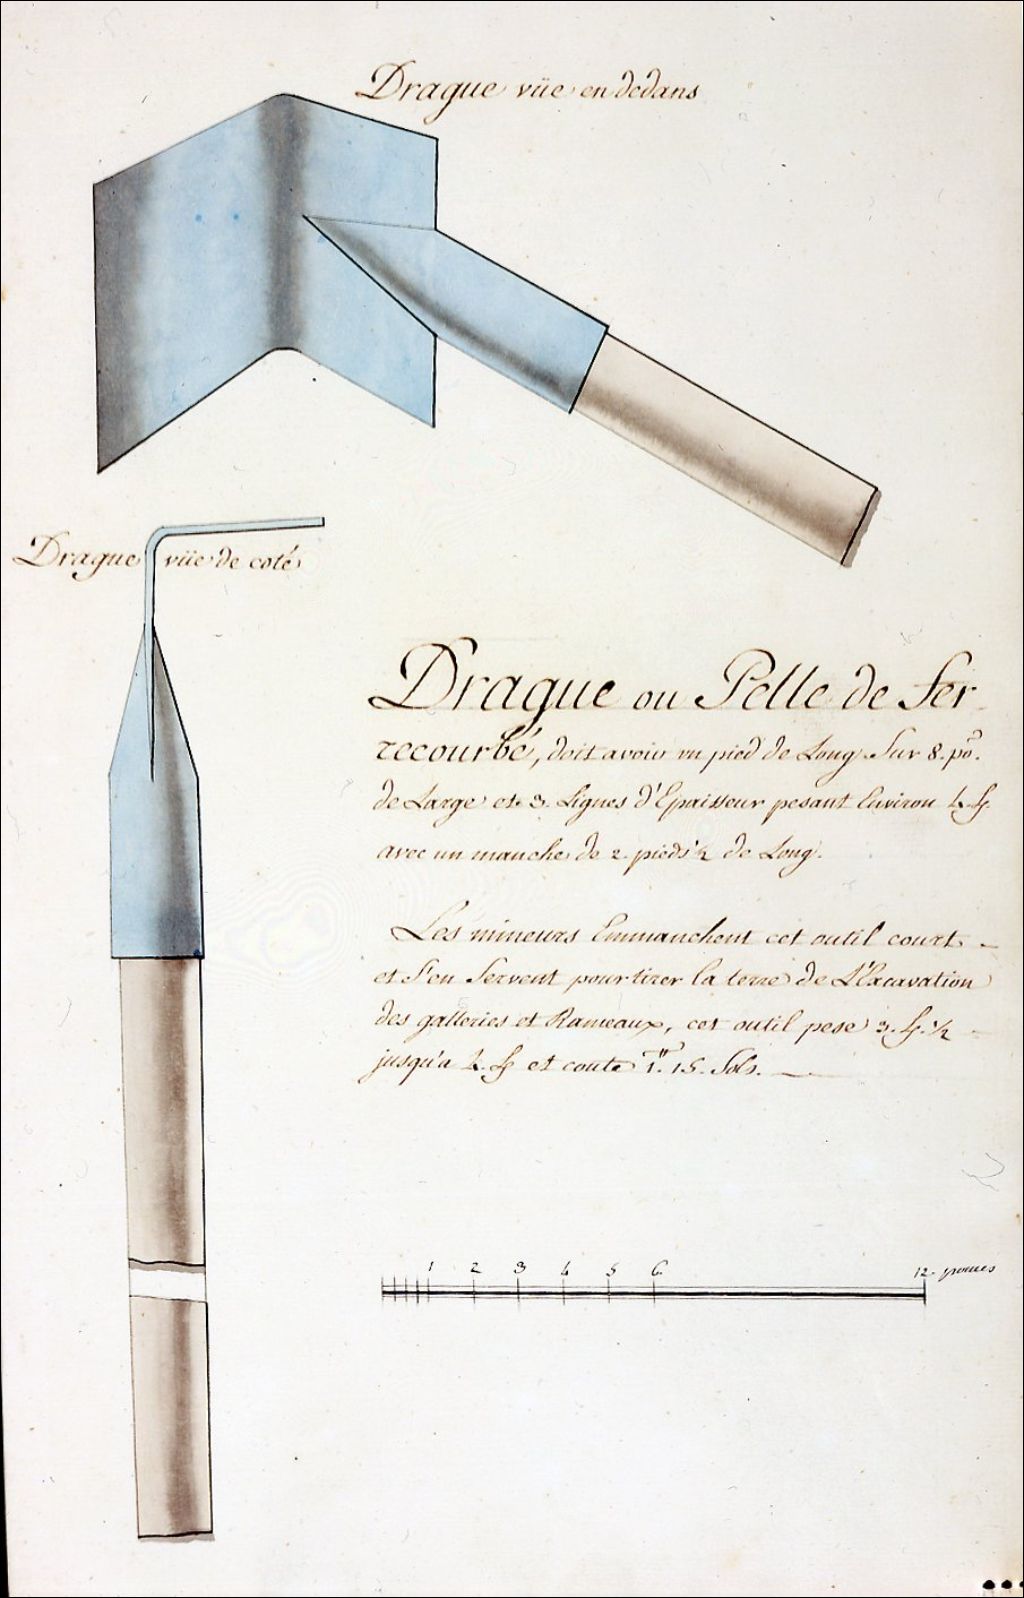 Drague vüe en dedans
Drague vüe de coté
Drague ou Pelle de fer
recourbé, doit avoir un pied de Long Sur 8. po.
de Large et 3. Lignes d'Epaisseur pesant Environ 4. ℔
avec un manche de 2 pieds ½ de Long.
Les mineurs Emmanchent cet outil court
et S'en Servent pour tirer la terre de L'Excavation
des galleries et Rameaux, cet outil pese 3. ℔. ½
jusqu'a 4. ℔ et coute 1.tt 15. Sols.
1 2 3 4 5 6 12 pouces